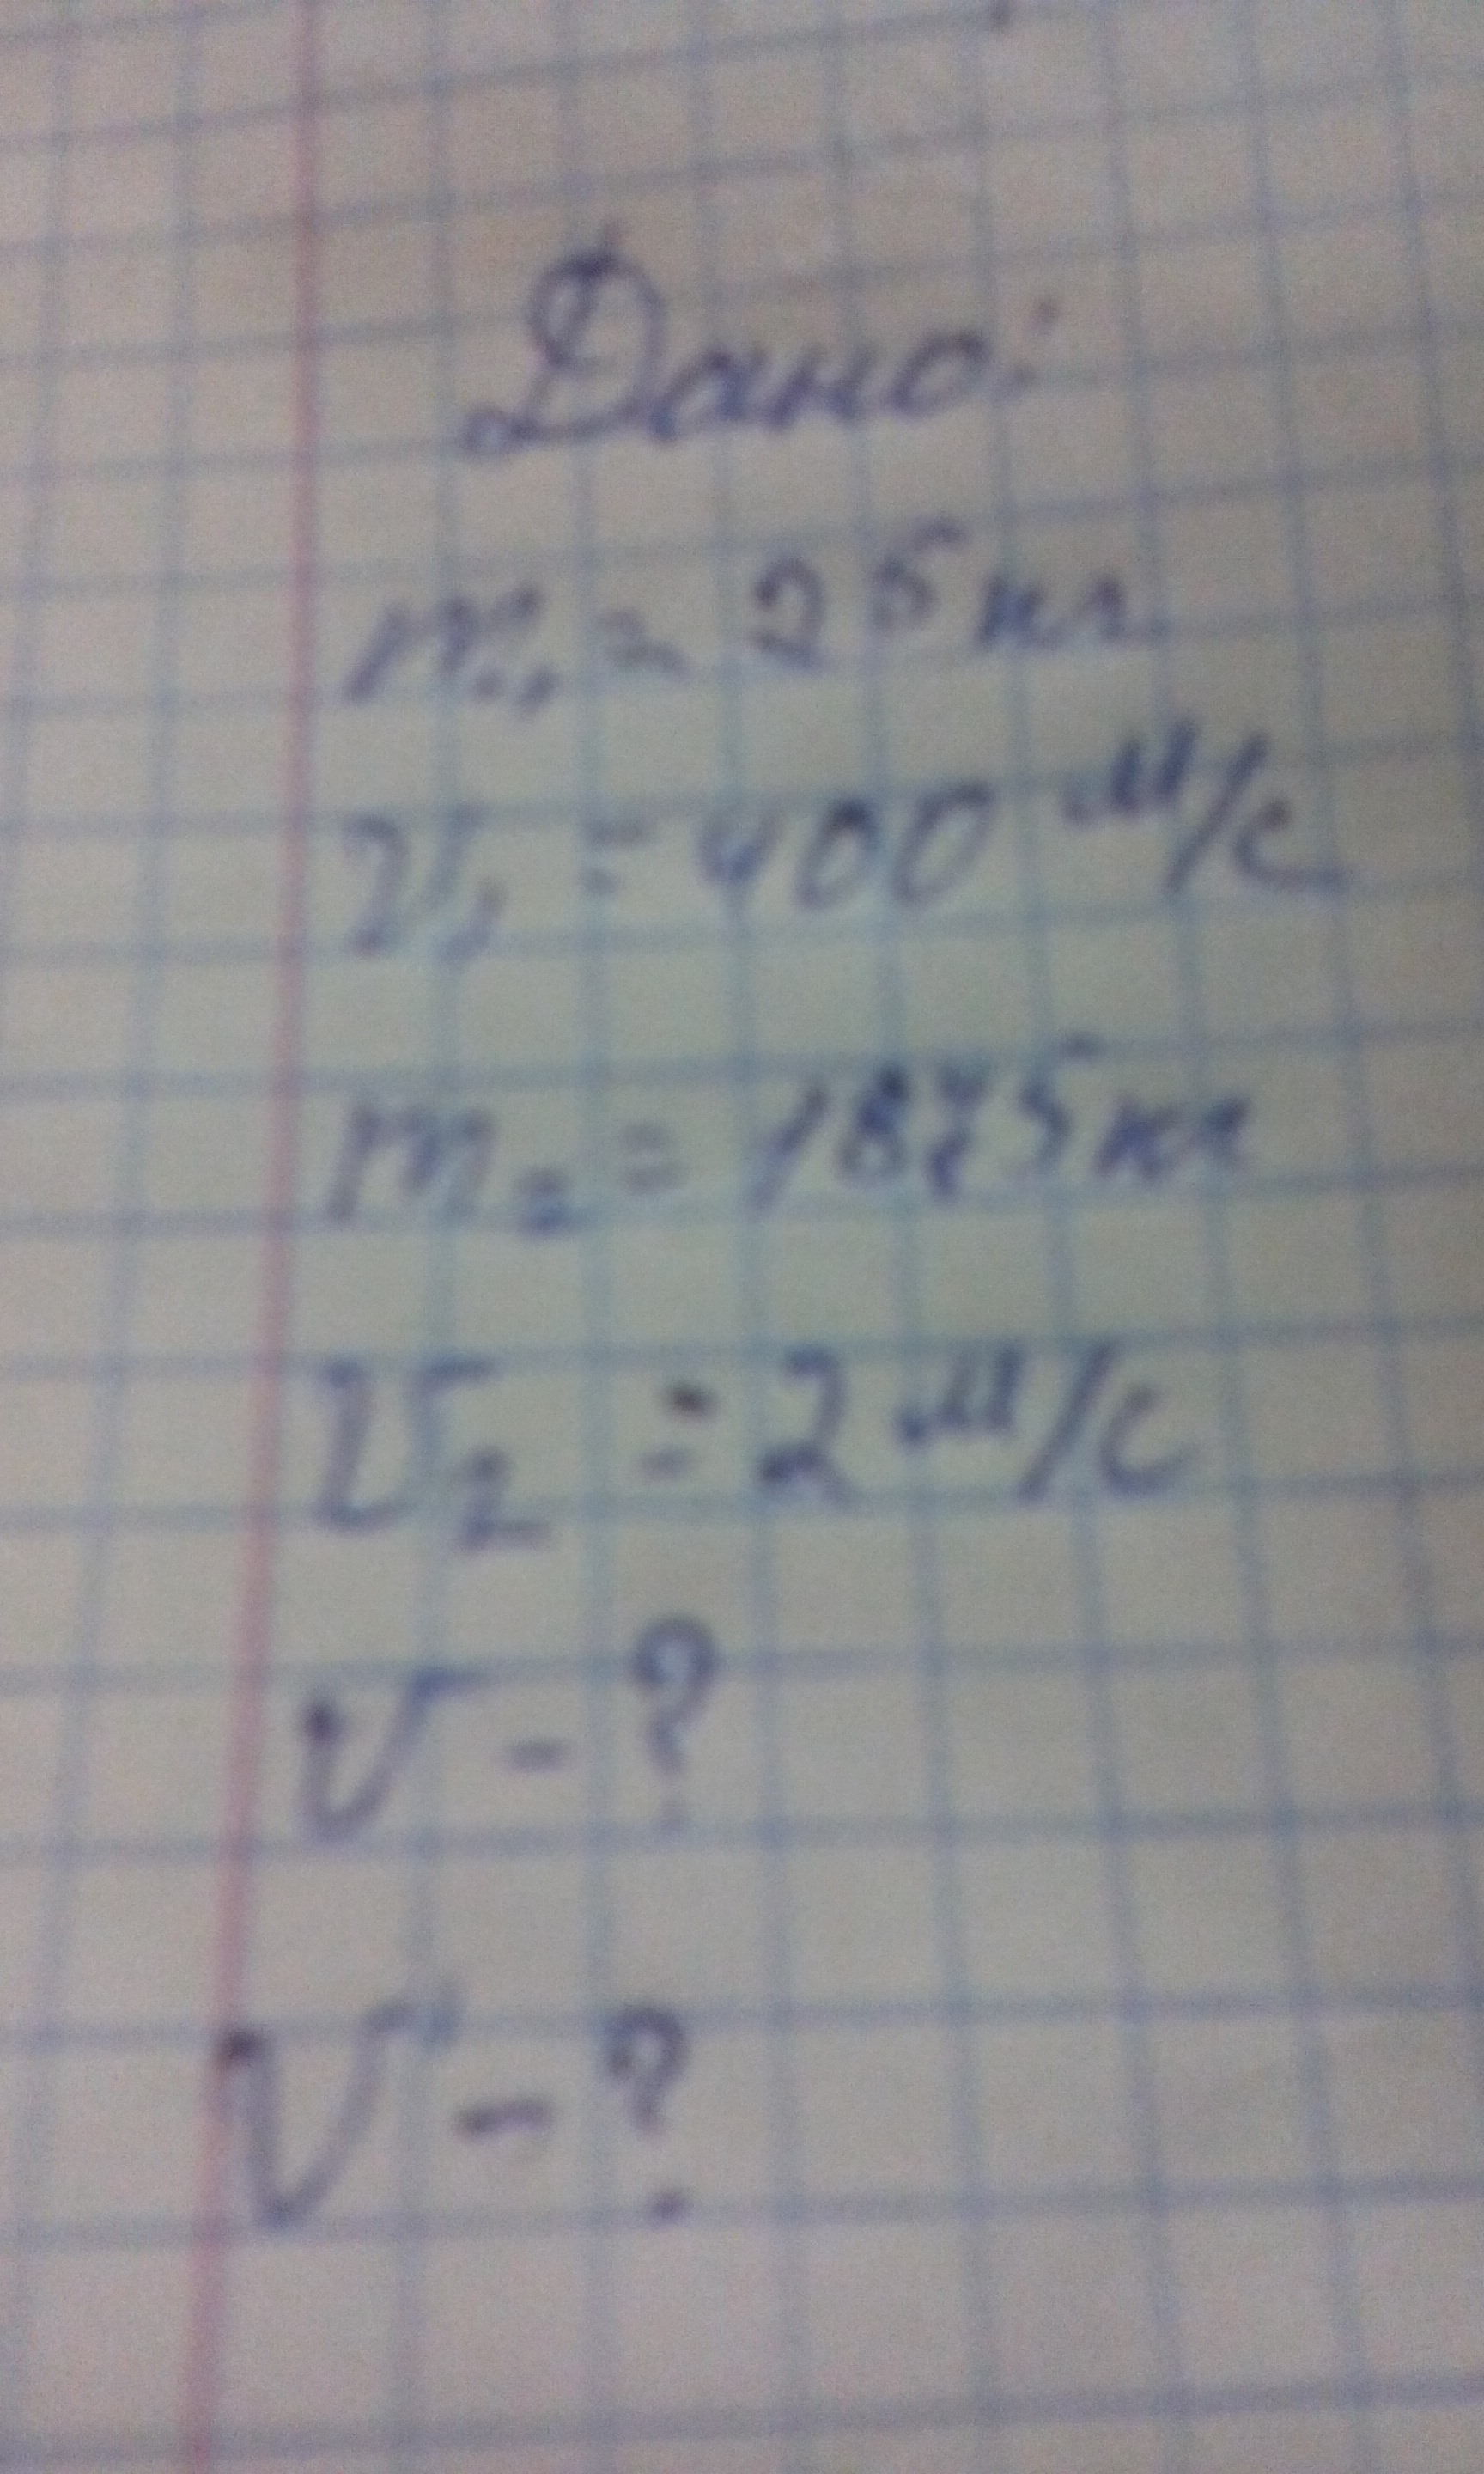 Дано:
m₁ = 25 кг
v₁ = 400 м/с
m₂ = 1875 кг
v₂ = 2 м/с
v - ?
v' - ?